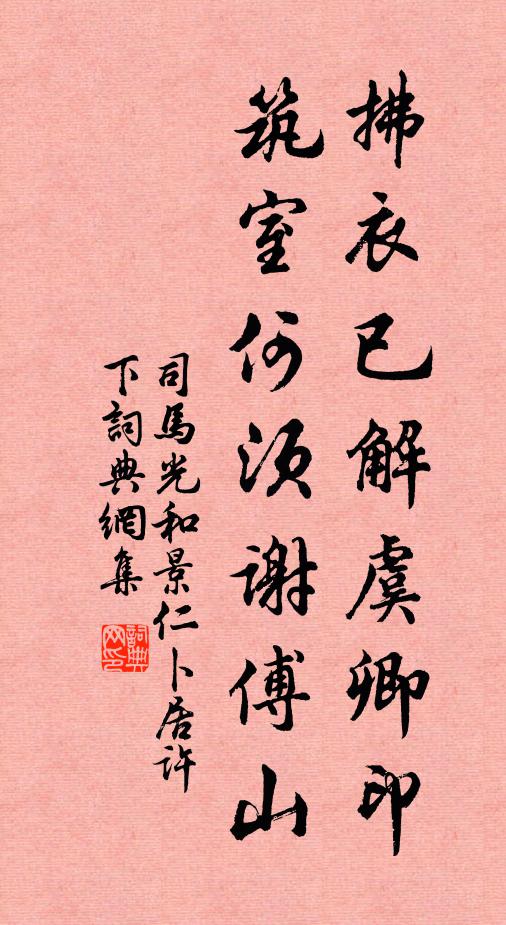 拂衣已解虞卿印
筑室何须謝傅山
司馬光和景仁卜居許
下詞典網集
詞典
网印